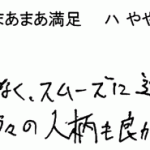 まあまあ満足 ハ やや
なく、スムーズに
々の人柄も良か